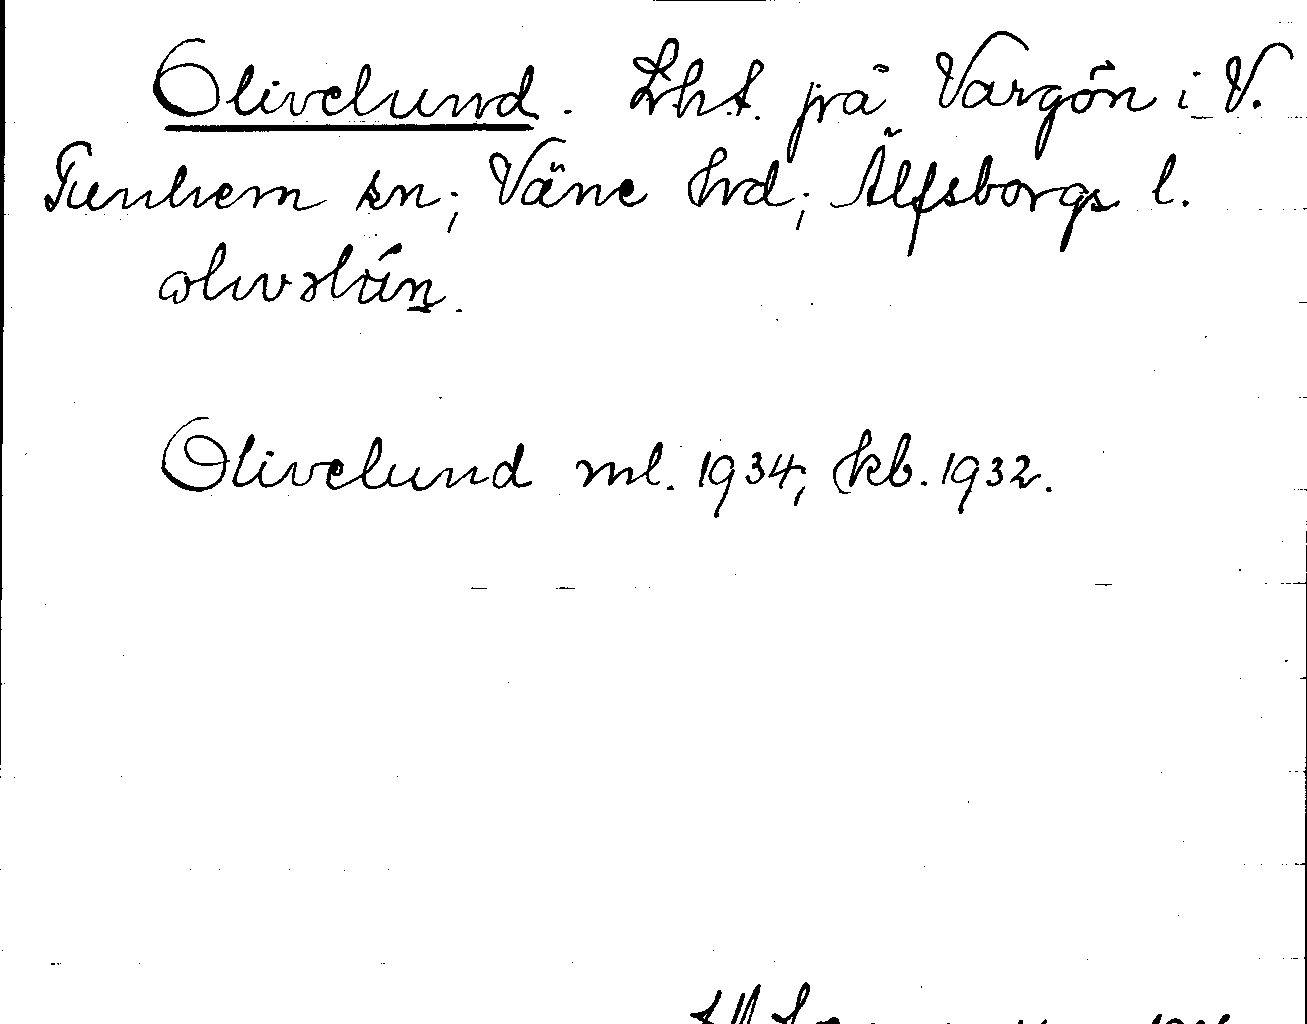 Olivelund. Lht. på Vargön i V.
Tunhem sn; Väne hd; Älfsborgs l.
Olivelund ml. 1934; kb. 1932.